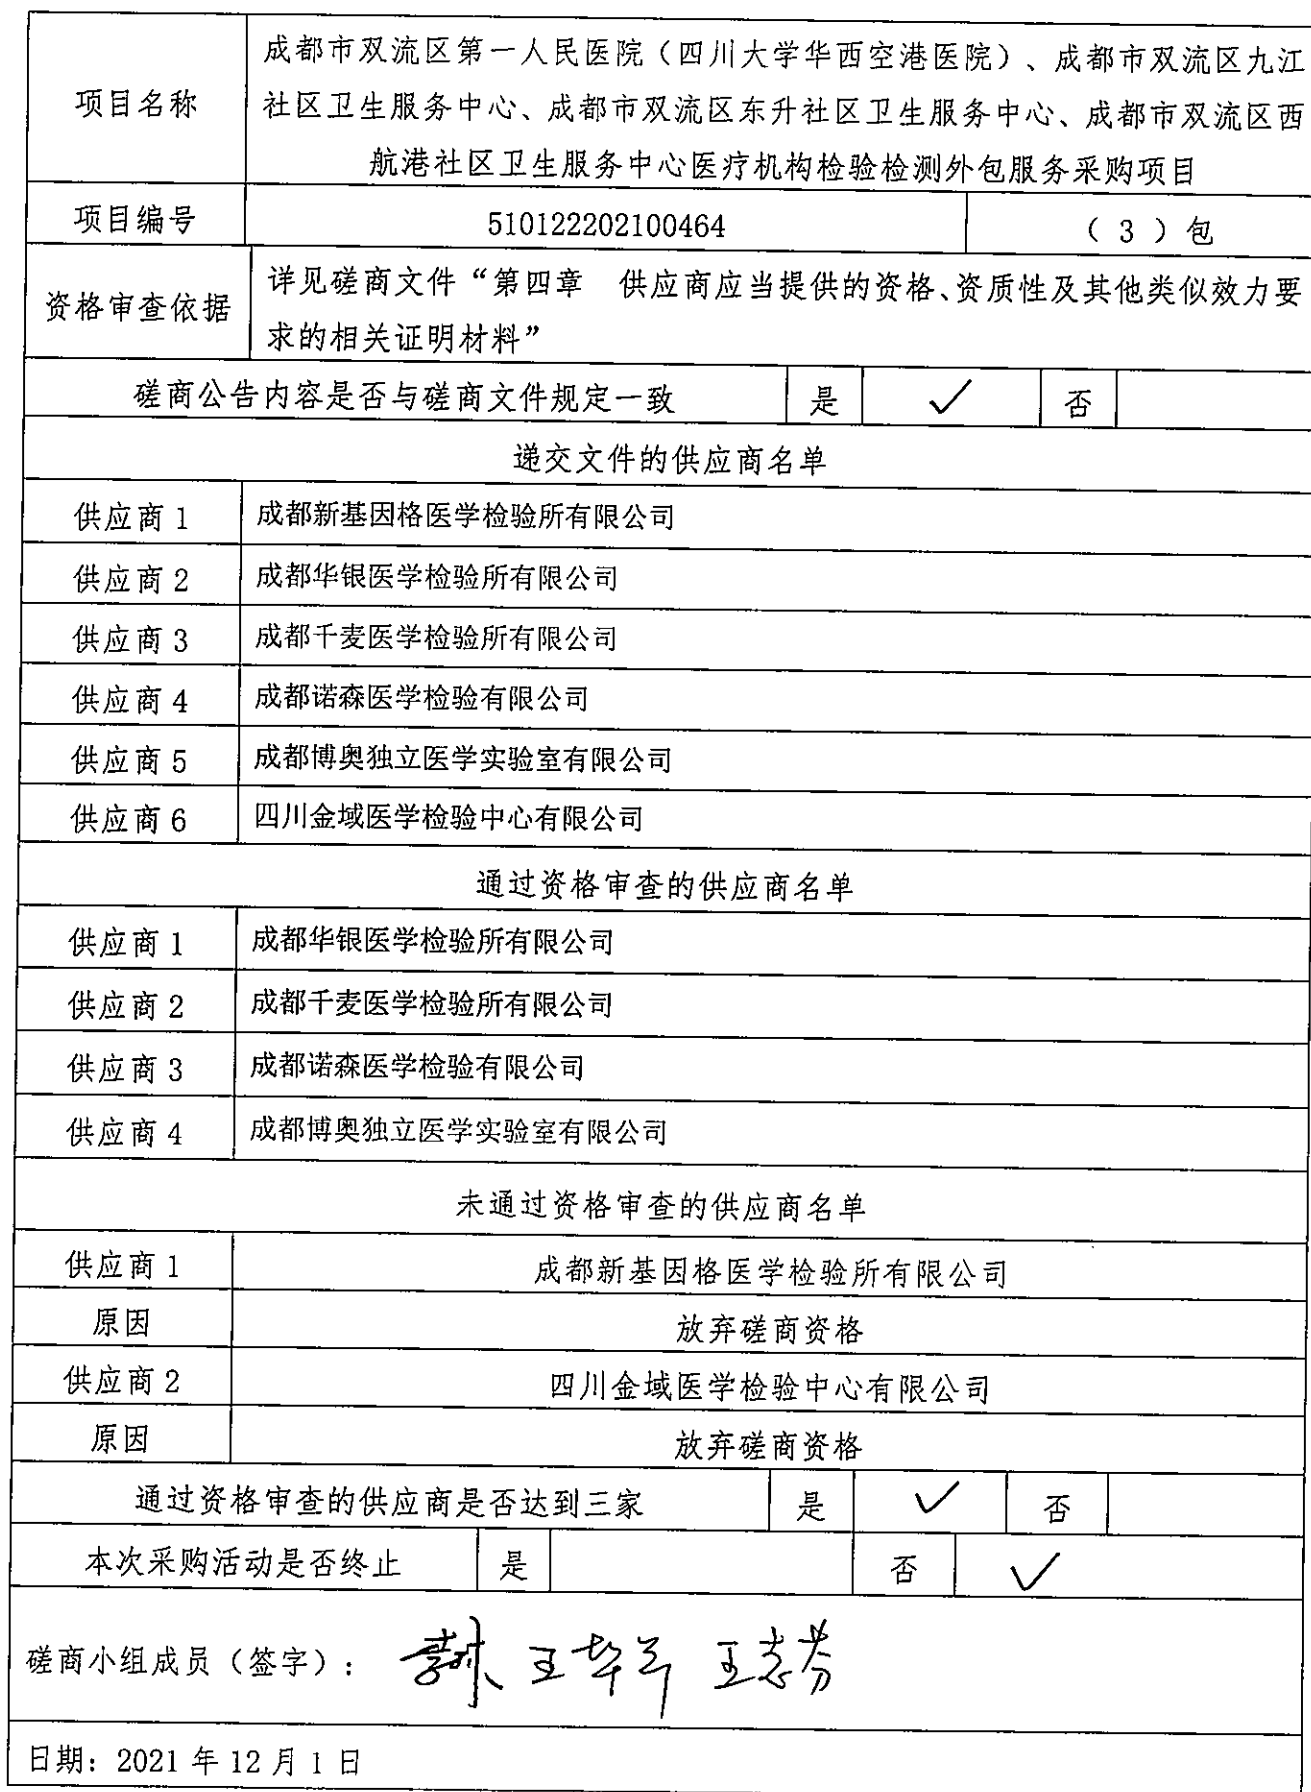 项目名称
成都市双流区第一人民医院（四川大学华西空港医院）、成都市双流区九江
社区卫生服务中心、成都市双流区东升社区卫生服务中心、成都市双流区西
航港社区卫生服务中心医疗机构检验检测外包服务采购项目
项目编号 510122202100464 （3）包
资格审查依据
详见磋商文件“第四章 供应商应当提供的资格、资质性及其他类似效力要
求的相关证明材料”
磋商公告内容是否与磋商文件规定一致 是 ✓ 否
递交文件的供应商名单
供应商1 成都新基因格医学检验所有限公司
供应商2 成都华银医学检验所有限公司
供应商3 成都千麦医学检验所有限公司
供应商4 成都诺森医学检验有限公司
供应商5 成都博奥独立医学实验室有限公司
供应商6 四川金域医学检验中心有限公司
通过资格审查的供应商名单
供应商1 成都华银医学检验所有限公司
供应商2 成都千麦医学检验所有限公司
供应商3 成都诺森医学检验有限公司
供应商4 成都博奥独立医学实验室有限公司
未通过资格审查的供应商名单
供应商1 成都新基因格医学检验所有限公司
原因 放弃磋商资格
供应商2 四川金域医学检验中心有限公司
原因 放弃磋商资格
通过资格审查的供应商是否达到三家 是 ✓ 否
本次采购活动是否终止 是 否 ✓
磋商小组成员（签字）： 王志芬
日期：2021年12月1日